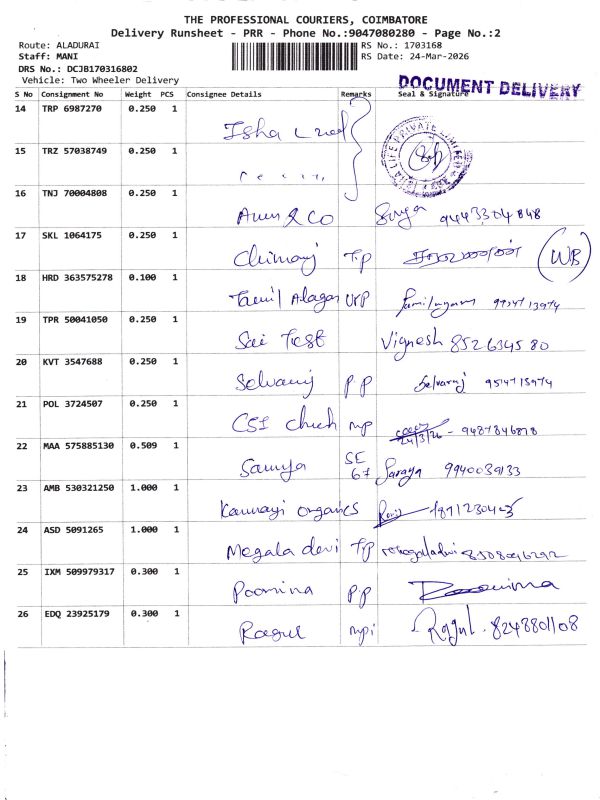 THE PROFESSIONAL COURIERS, COIMBATORE
Delivery Runsheet - PRR - Phone No.:9047080280 - Page No.:2
Route: ALADURAI RS No.: 1703168
Staff: MANI RS Date: 24-Mar-2026
DRS No.: DCJB170316802
Vehicle: Two Wheeler Delivery
DOCUMENT DELIVERY
S No Consignment No Weight PCS Consignee Details Remarks Seal & Signature
14 TRP 6987270 0.250 1
Isha
15 TRZ 57038749 0.250 1
LIFE PRIVATE LIMITED
16 TNJ 70004808 0.250 1
Arun & Co Surya 9443304848
17 SKL 1064175 0.250 1
Chinnaraj T.p சரவணன் WB
18 HRD 363575278 0.100 1
Tamil Alagan
19 TPR 50041050 0.250 1
Sai Test Vignesh 8526345 80
20 KVT 3547688 0.250 1
Selvaraj P.P Selvaraj
21 POL 3724507 0.250 1
CSI mp 24/3/26 - 9487846878
22 MAA 575885130 0.509 1
Saniya SE 67 Saraya 9940039133
23 AMB 530321250 1.000 1
Kannagi organics
24 ASD 5091265 1.000 1
Megala devi TP 8508046292
25 IXM 509979317 0.300 1
Poornima P.P Poornima
26 EDQ 23925179 0.300 1
Ragul Ragul. 8248801108